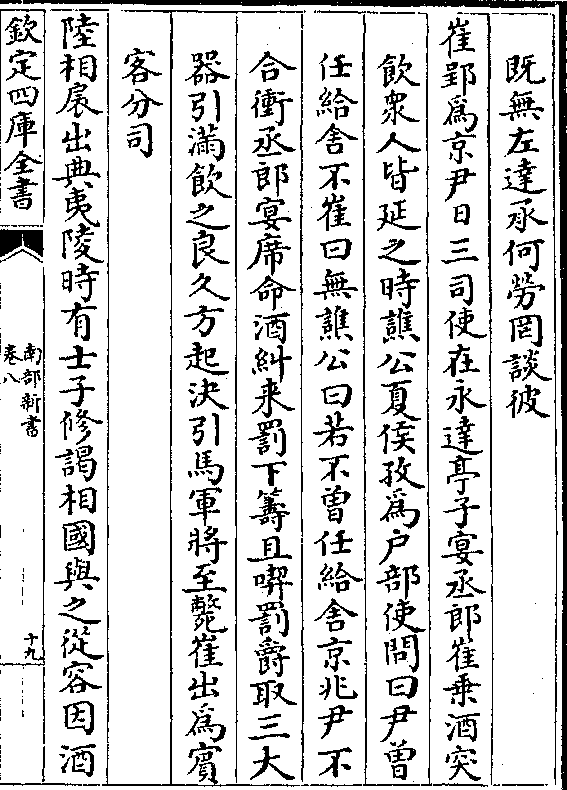 既無左達承何勞罔談彼
崔郢爲京尹日三司使在永達亭子宴丞郎崔乗酒突
飲衆人皆延之時譙公夏侯孜爲户部使問曰尹曽
任給舍不崔曰無譙公曰若不曽任給舍京兆尹不
合衝丞郎宴席命酒糾来罰下籌且喫罰爵取三大
器引滿飲之良久方起決引馬軍將至斃崔出爲賓
客分司
陸相扆出典夷陵時有士子修謁相國與之從容因酒
欽定四庫全書
南部新書
卷八
十九